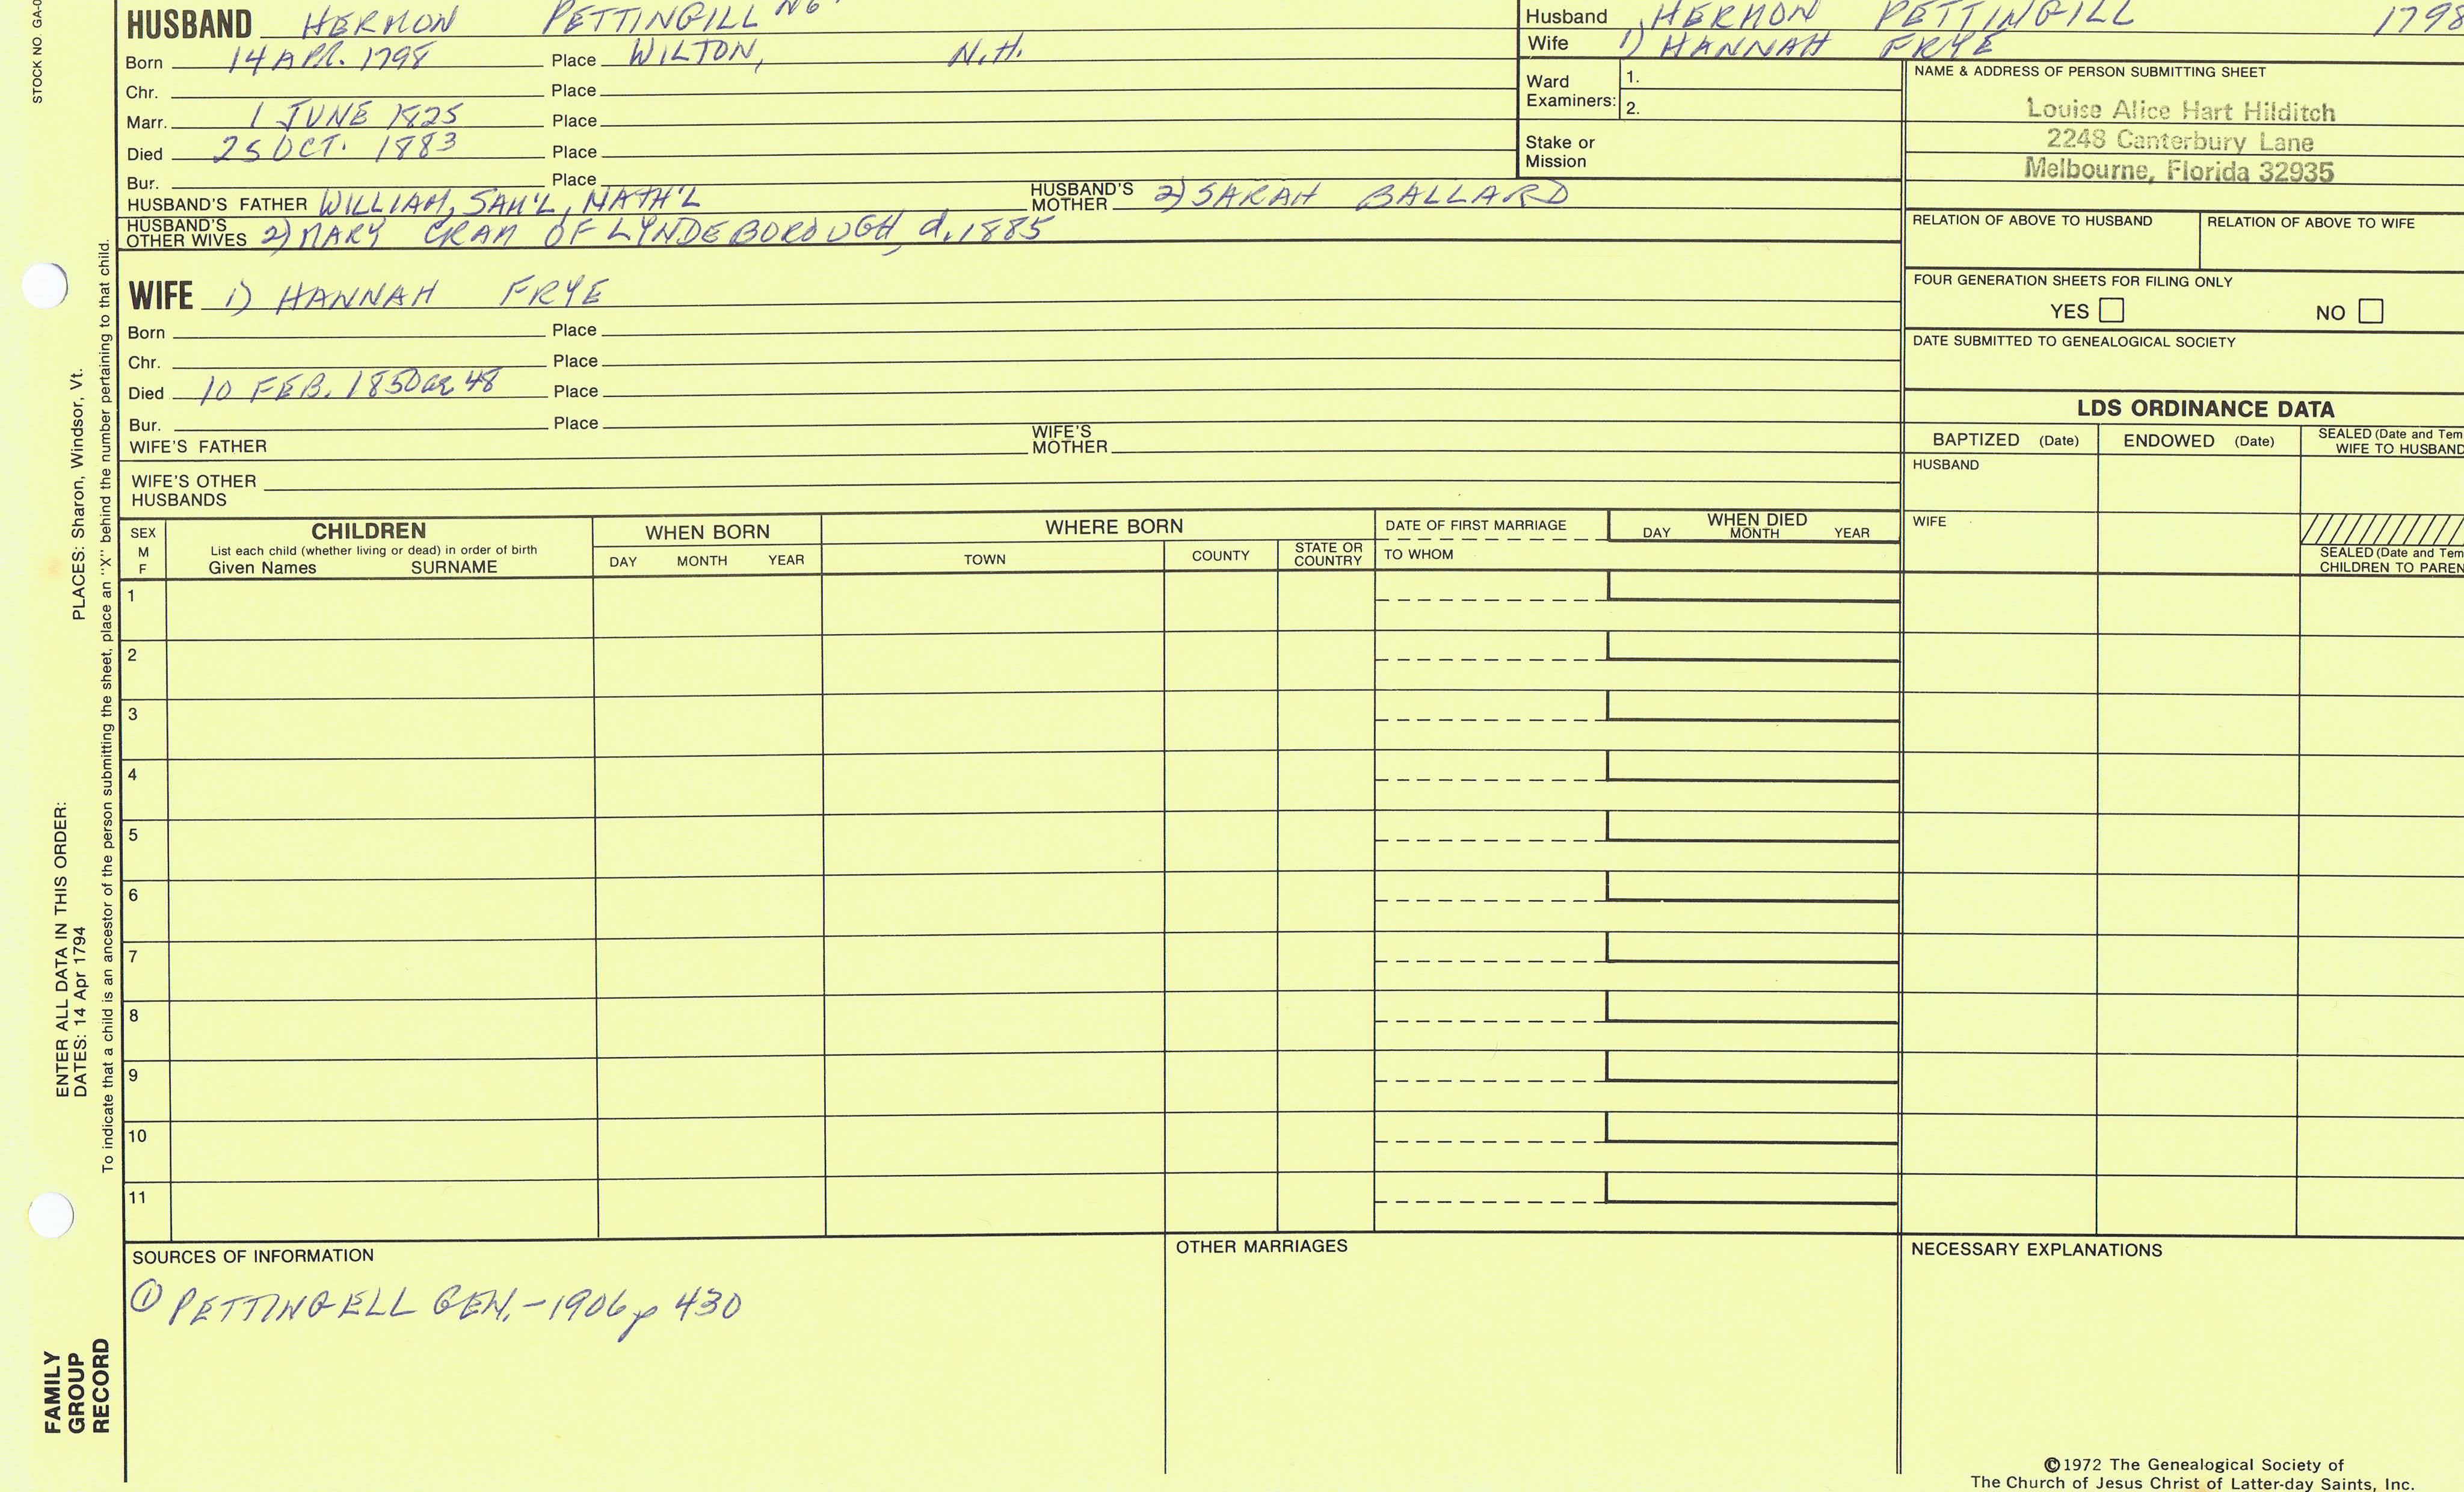 STOCK NO. GA-0
HUSBAND HERMON PETTINGILL N6
Born 14 APR. 1798 Place WILTON, N.H.
Chr. Place
Marr. 1 JUNE 1825 Place
Died 25 OCT. 1883 Place
Bur. Place
HUSBAND'S FATHER WILLIAM, SAM'L, NATH'L HUSBAND'S MOTHER 2) SARAH BALLARD
HUSBAND'S OTHER WIVES 2) MARY CRAM OF LYNDEBOROUGH, d. 1885
WIFE 1) HANNAH FRYE
Born Place
Chr. Place
Died 10 FEB. 1850 ae 48 Place
Bur. Place
WIFE'S FATHER WIFE'S MOTHER
WIFE'S OTHER HUSBANDS
Husband HERMON PETTINGILL 1798
Wife 1) HANNAH FRYE
Ward Examiners: 1.
2.
Stake or Mission
NAME & ADDRESS OF PERSON SUBMITTING SHEET
Louise Alice Hart Hilditch
2248 Canterbury Lane
Melbourne, Florida 32935
RELATION OF ABOVE TO HUSBAND RELATION OF ABOVE TO WIFE
FOUR GENERATION SHEETS FOR FILING ONLY
YES NO
DATE SUBMITTED TO GENEALOGICAL SOCIETY
LDS ORDINANCE DATA
BAPTIZED (Date) ENDOWED (Date) SEALED (Date and Tem
WIFE TO HUSBAND
HUSBAND
WIFE
SEALED (Date and Tem
CHILDREN TO PAREN
SEX
M
F
CHILDREN
List each child (whether living or dead) in order of birth
Given Names SURNAME
WHEN BORN
DAY MONTH YEAR
WHERE BORN
TOWN COUNTY STATE OR COUNTRY
DATE OF FIRST MARRIAGE
TO WHOM
WHEN DIED
DAY MONTH YEAR
1
2
3
4
5
6
7
8
9
10
11
SOURCES OF INFORMATION
① PETTINGELL GEN. - 1906 p 430
OTHER MARRIAGES
NECESSARY EXPLANATIONS
©1972 The Genealogical Society of
The Church of Jesus Christ of Latter-day Saints, Inc.
PLACES: Sharon, Windsor, Vt.
ENTER ALL DATA IN THIS ORDER:
DATES: 14 Apr 1794
To indicate that a child is an ancestor of the person submitting the sheet, place an "X" behind the number pertaining to that child.
FAMILY
GROUP
RECORD